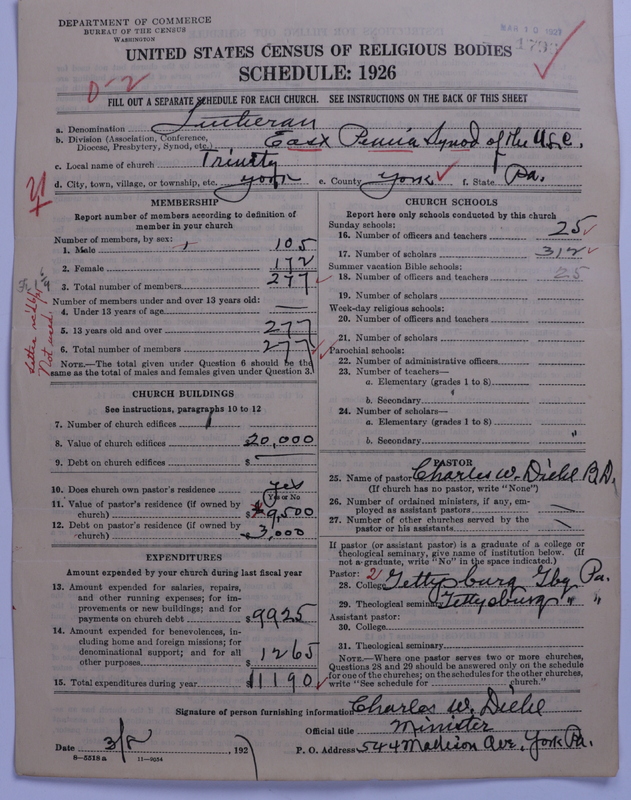 DEPARTMENT OF COMMERCE
BUREAU OF THE CENSUS
WASHINGTON
MAR 10 1927
UNITED STATES CENSUS OF RELIGIOUS BODIES
SCHEDULE: 1926
0-2
FILL OUT A SEPARATE SCHEDULE FOR EACH CHURCH. SEE INSTRUCTIONS ON THE BACK OF THIS SHEET
a. Denomination Lutheran
b. Division (Association, Conference, Diocese, Presbytery, Synod, etc.) East Penna Synod of the U.S.C.
c. Local name of church Trinity
d. City, town, village, or township, etc. York e. County York f. State Pa.
MEMBERSHIP
Report number of members according to definition of member in your church
Number of members, by sex:
1. Male 105
2. Female 172
3. Total number of members 277
Number of members under and over 13 years old:
4. Under 13 years of age —
5. 13 years old and over 277
6. Total number of members 277
NOTE.—The total given under Question 6 should be the same as the total of males and females given under Question 3.
CHURCH BUILDINGS
See instructions, paragraphs 10 to 12
7. Number of church edifices 1
8. Value of church edifices $20,000
9. Debt on church edifices $ —
10. Does church own pastor's residence yes
Yes or No
11. Value of pastor's residence (if owned by church) $9,500
12. Debt on pastor's residence (if owned by church) $3,000
EXPENDITURES
Amount expended by your church during last fiscal year
13. Amount expended for salaries, repairs, and other running expenses; for improvements or new buildings; and for payments on church debt $9925
14. Amount expended for benevolences, including home and foreign missions; for denominational support; and for all other purposes 1265
15. Total expenditures during year $11190
CHURCH SCHOOLS
Report here only schools conducted by this church
Sunday schools:
16. Number of officers and teachers 25
17. Number of scholars 312
Summer vacation Bible schools:
18. Number of officers and teachers 25
19. Number of scholars
Week-day religious schools:
20. Number of officers and teachers
21. Number of scholars
Parochial schools:
22. Number of administrative officers
23. Number of teachers—
a. Elementary (grades 1 to 8)
b. Secondary
24. Number of scholars—
a. Elementary (grades 1 to 8)
b. Secondary "
PASTOR
25. Name of pastor Charles W. Diehl B.D.
(If church has no pastor, write "None")
26. Number of ordained ministers, if any, employed as assistant pastors
27. Number of other churches served by the pastor or his assistants
If pastor (or assistant pastor) is a graduate of a college or theological seminary, give name of institution below. (If not a graduate, write "No" in the space indicated.)
Pastor: 2
28. College Gettysburg Gbg Pa.
29. Theological seminary Gettysburg " "
Assistant pastor:
30. College
31. Theological seminary
NOTE.—Where one pastor serves two or more churches, Questions 28 and 29 should be answered only on the schedule for one of the churches; on the schedules for the other churches, write "See schedule for church."
Signature of person furnishing information Charles W. Diehl
Official title Minister
Date 3/8, 1927 P. O. Address 544 Madison Ave, York Pa.
8—5518a 11—9054